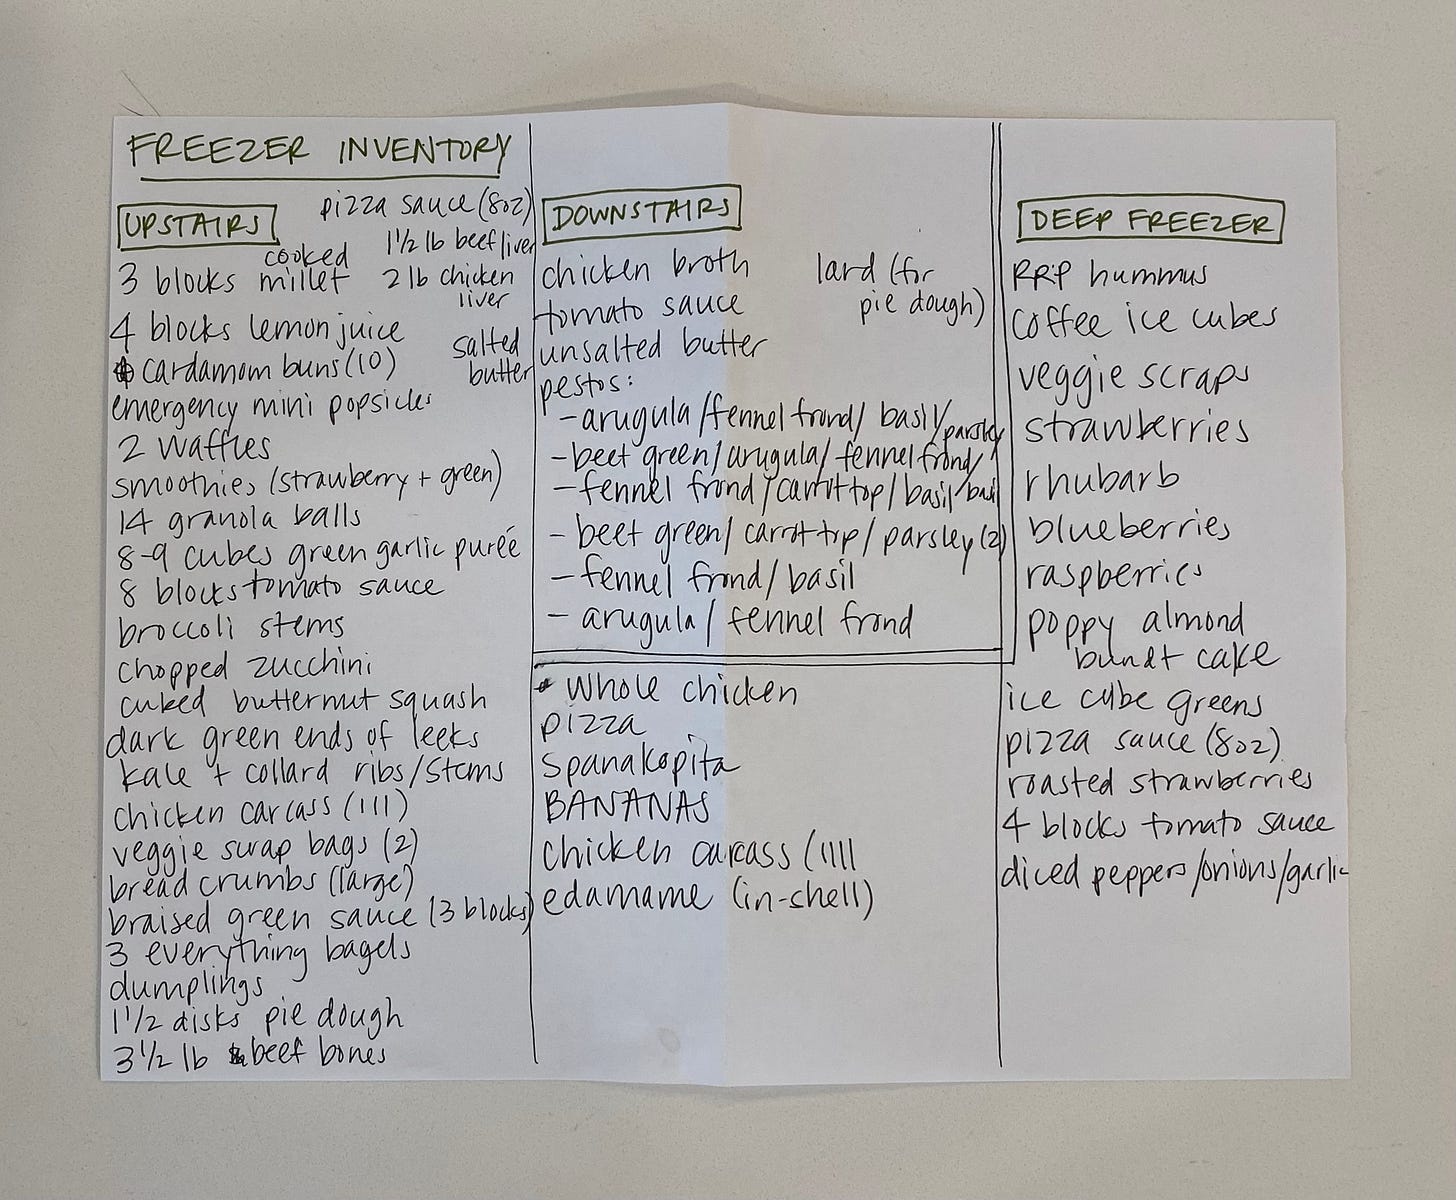 FREEZER INVENTORY
UPSTAIRS
pizza sauce (8oz)
1 1/2 lb beef liver
cooked
3 blocks millet
2 lb chicken
liver
4 blocks lemon juice
salted
butter
cardamom buns (10)
emergency mini popsicles
2 waffles
smoothies (strawberry + green)
14 granola balls
8-9 cubes green garlic purée
8 blocks tomato sauce
broccoli stems
chopped zucchini
cubed butternut squash
dark green ends of leeks
kale + collard ribs/stems
chicken carcass (111)
veggie scrap bags (2)
bread crumbs (large)
braised green sauce (3 blocks)
3 everything bagels
dumplings
1 1/2 disks pie dough
3 1/2 lb beef bones
DOWNSTAIRS
chicken broth
lard (for
pie dough)
tomato sauce
unsalted butter
pestos:
- arugula/fennel frond/ basil/parsley
- beet green/arugula/fennel frond/
- fennel frond/carrot top/basil/
- beet green/carrot top/parsley (2)
- fennel frond/basil
- arugula/fennel frond
whole chicken
pizza
spanakopita
BANANAS
chicken carcass (1111
edamame (in-shell)
DEEP FREEZER
RRP hummus
coffee ice cubes
veggie scraps
strawberries
rhubarb
blueberries
raspberries
poppy almond
bundt cake
ice cube greens
pizza sauce (8oz)
roasted strawberries
4 blocks tomato sauce
diced peppers/onions/garlic